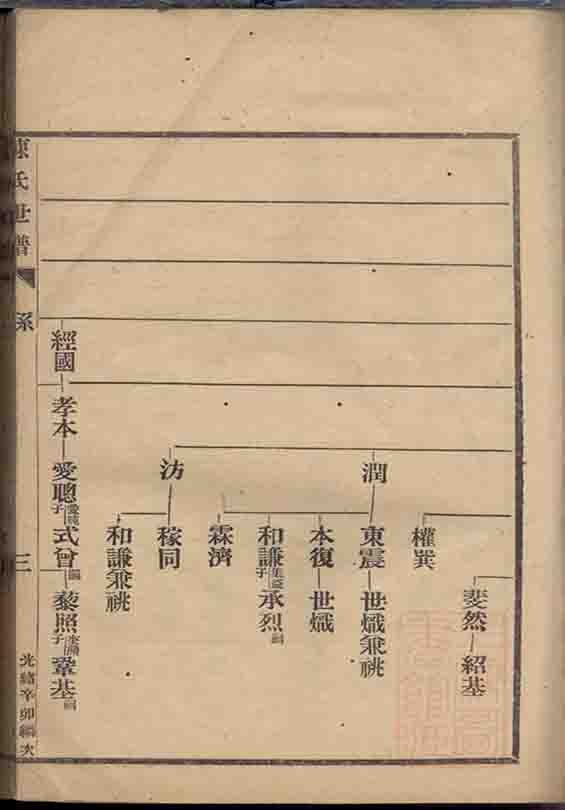 斐然 紹基
權巽
潤
東震 世熾兼祧
本復 世熾
和謙 子 承烈 嗣
霖濟
汸
稼同
和謙兼祧
經國
孝本 愛聰 子 式曾 嗣 藜照 子 鞏基 嗣
氏世譜
系
三
光緒辛卯編次